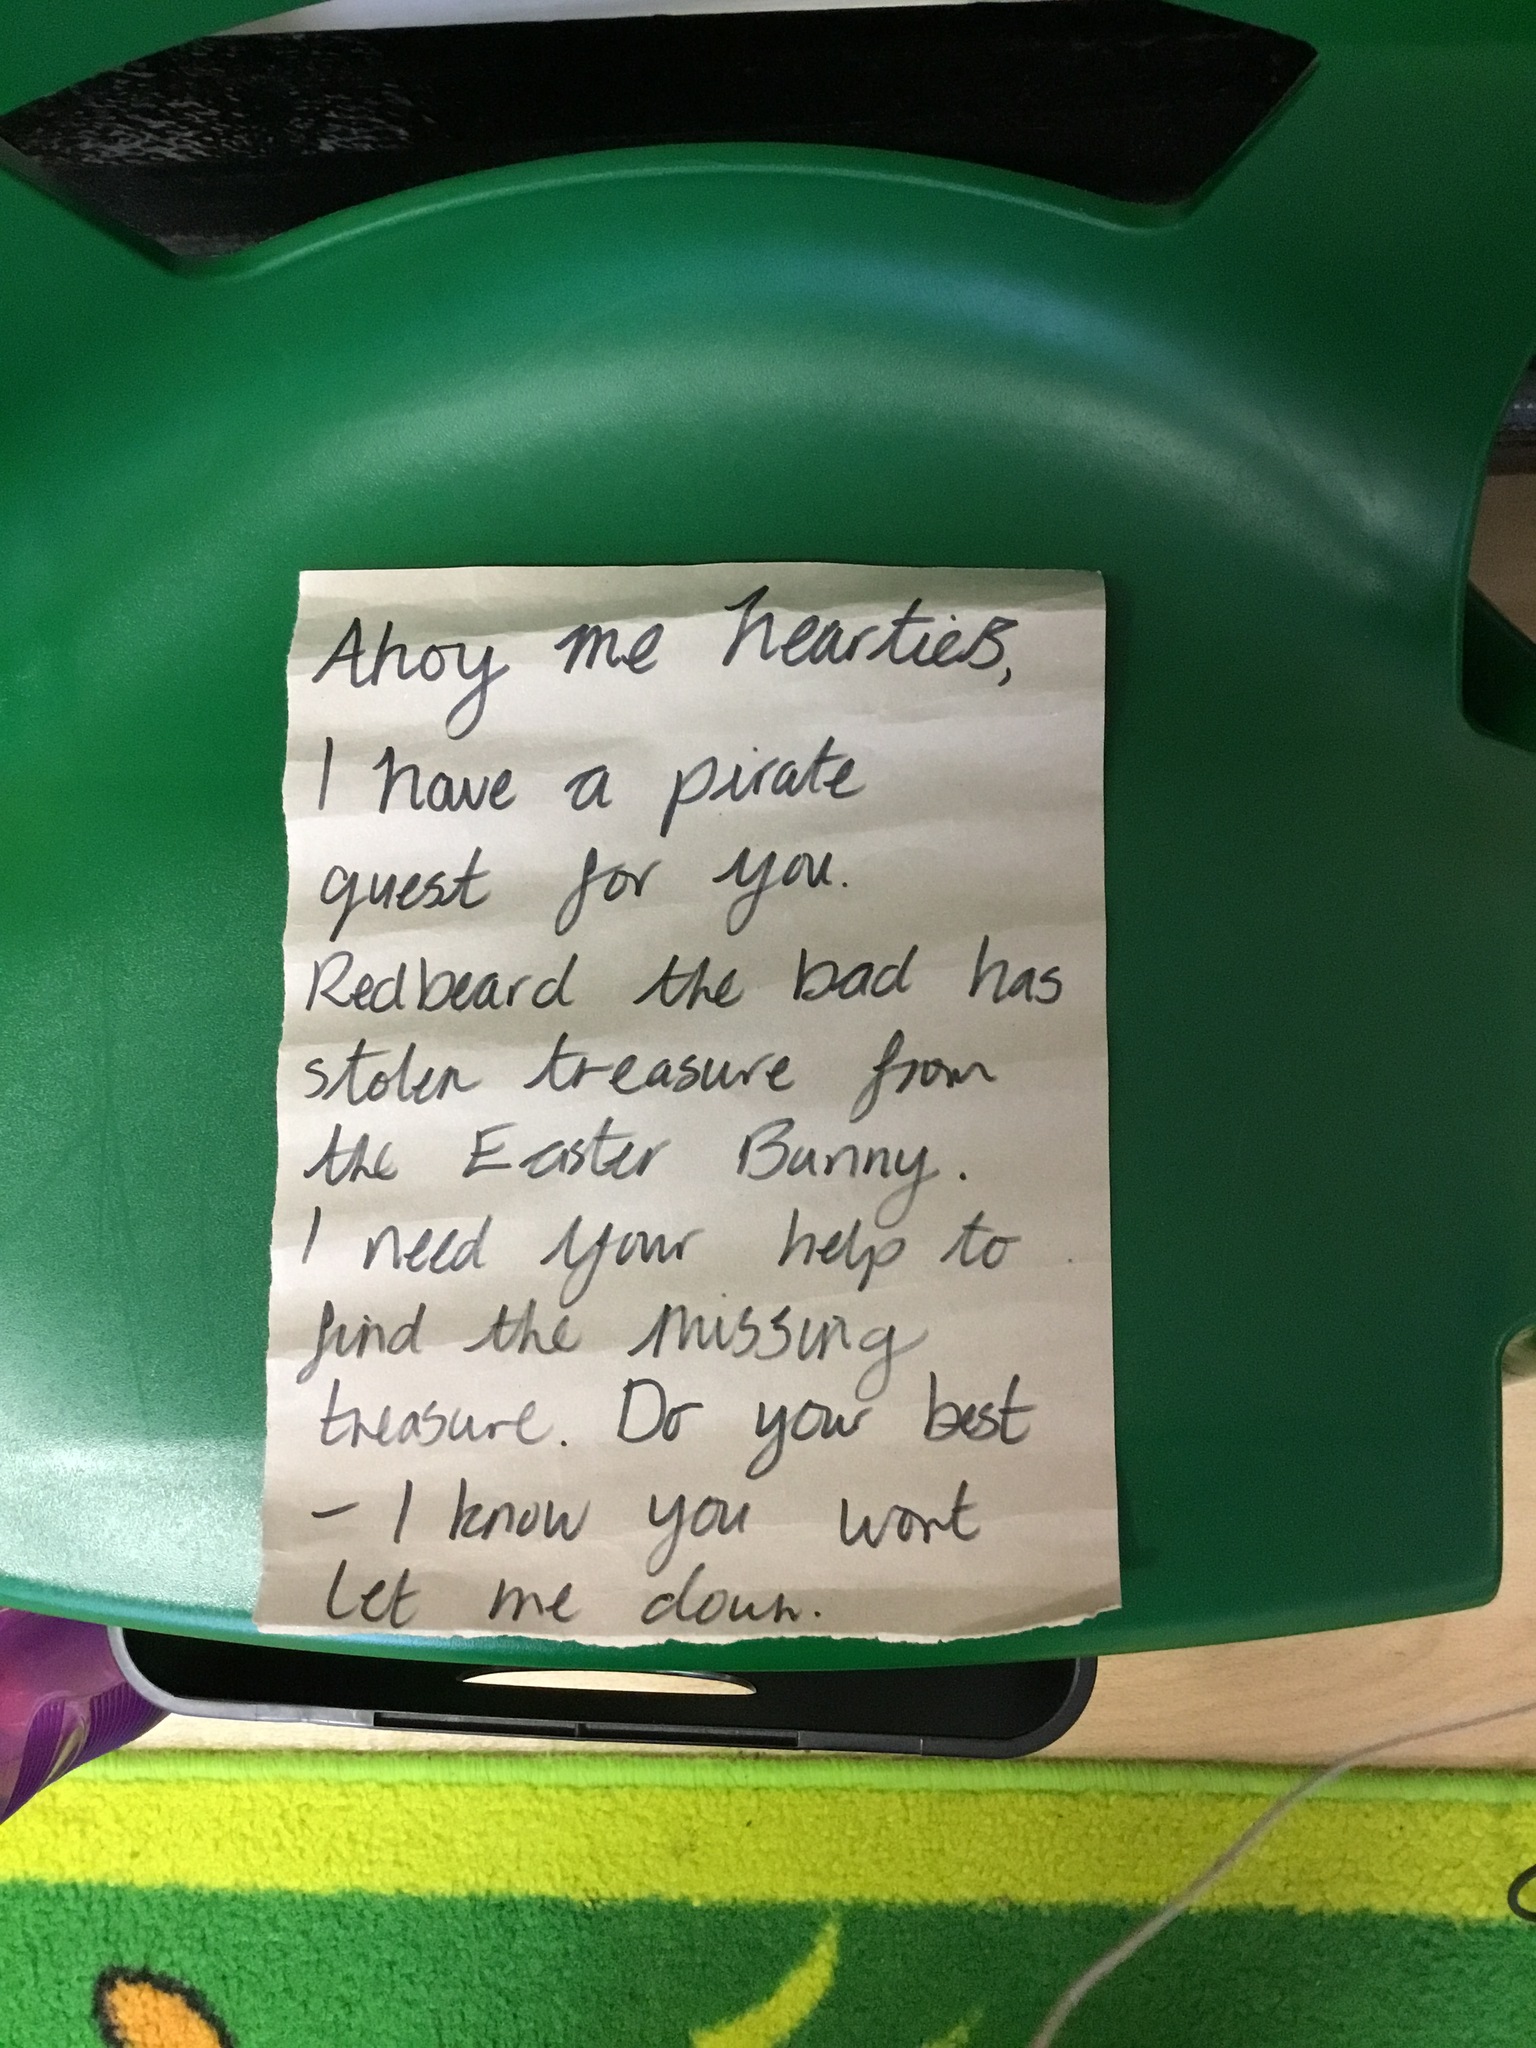 Ahoy me hearties,
I have a pirate
quest for you.
Redbeard the bad has
stolen treasure from
the Easter Bunny.
I need your help to
find the missing
treasure. Do your best
- I know you wont
let me down.